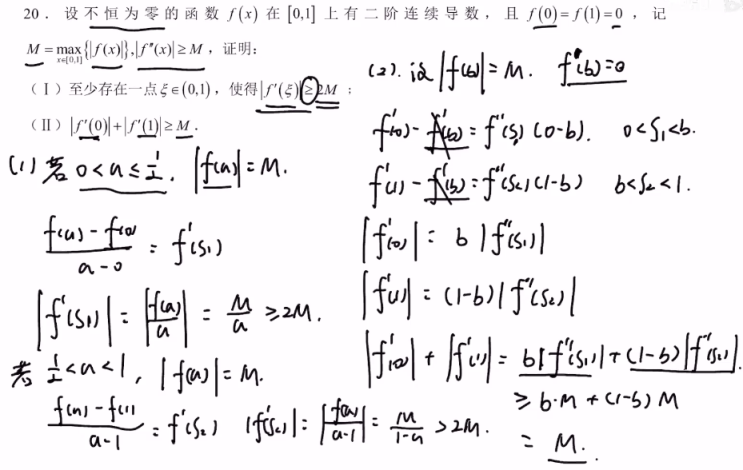 20．设不恒为零的函数 f(x) 在 [0,1] 上有二阶连续导数，且 f(0)=f(1)=0，记
M=max{|f(x)|},|f''(x)|≥M，证明：
x∈[0,1]
（Ⅰ）至少存在一点ξ∈(0,1)，使得|f'(ξ)|≥2M；
（Ⅱ）|f'(0)|+|f'(1)|≥M．
(1) 若 0<a≤1/2, |f(a)|=M.
(f(a)-f(0))/(a-0) = f'(ξ₁)
|f'(ξ₁)| = |f(a)/a| = M/a ≥2M.
若 1/2<a<1, |f(a)|=M.
(f(a)-f(1))/(a-1) = f'(ξ₂) |f'(ξ₂)| = |f(a)/(a-1)| = M/(1-a) >2M.
(2). 设 |f(b)|=M. f'(b)=0
f'(0)-f'(b)=f''(ξ₁)(0-b). 0<ξ₁<b.
f'(1)-f'(b)=f''(ξ₂)(1-b) b<ξ₂<1.
|f'(0)| = b|f''(ξ₁)|
|f'(1)| = (1-b)|f''(ξ₂)|
|f'(0)|+|f'(1)| = b|f''(ξ₁)|+(1-b)|f''(ξ₂)|.
≥ b·M+(1-b)M
= M.